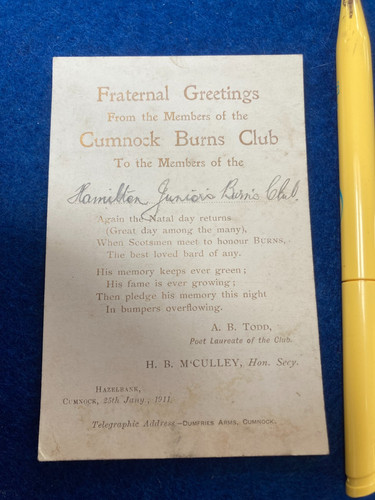 Fraternal Greetings
From the Members of the
Cumnock Burns Club
To the Members of the
Hamilton Junior's Burn's Club.
Again the Natal day returns
(Great day among the many),
When Scotsmen meet to honour BURNS,
The best loved bard of any.
His memory keeps ever green;
His fame is ever growing;
Then pledge his memory this night
In bumpers overflowing.
A. B. TODD,
Poet Laureate of the Club.
H. B. McCULLEY, Hon. Secy.
HAZELBANK,
CUMNOCK, 25th Jany, 1911.
Telegraphic Address—DUMFRIES ARMS, CUMNOCK.